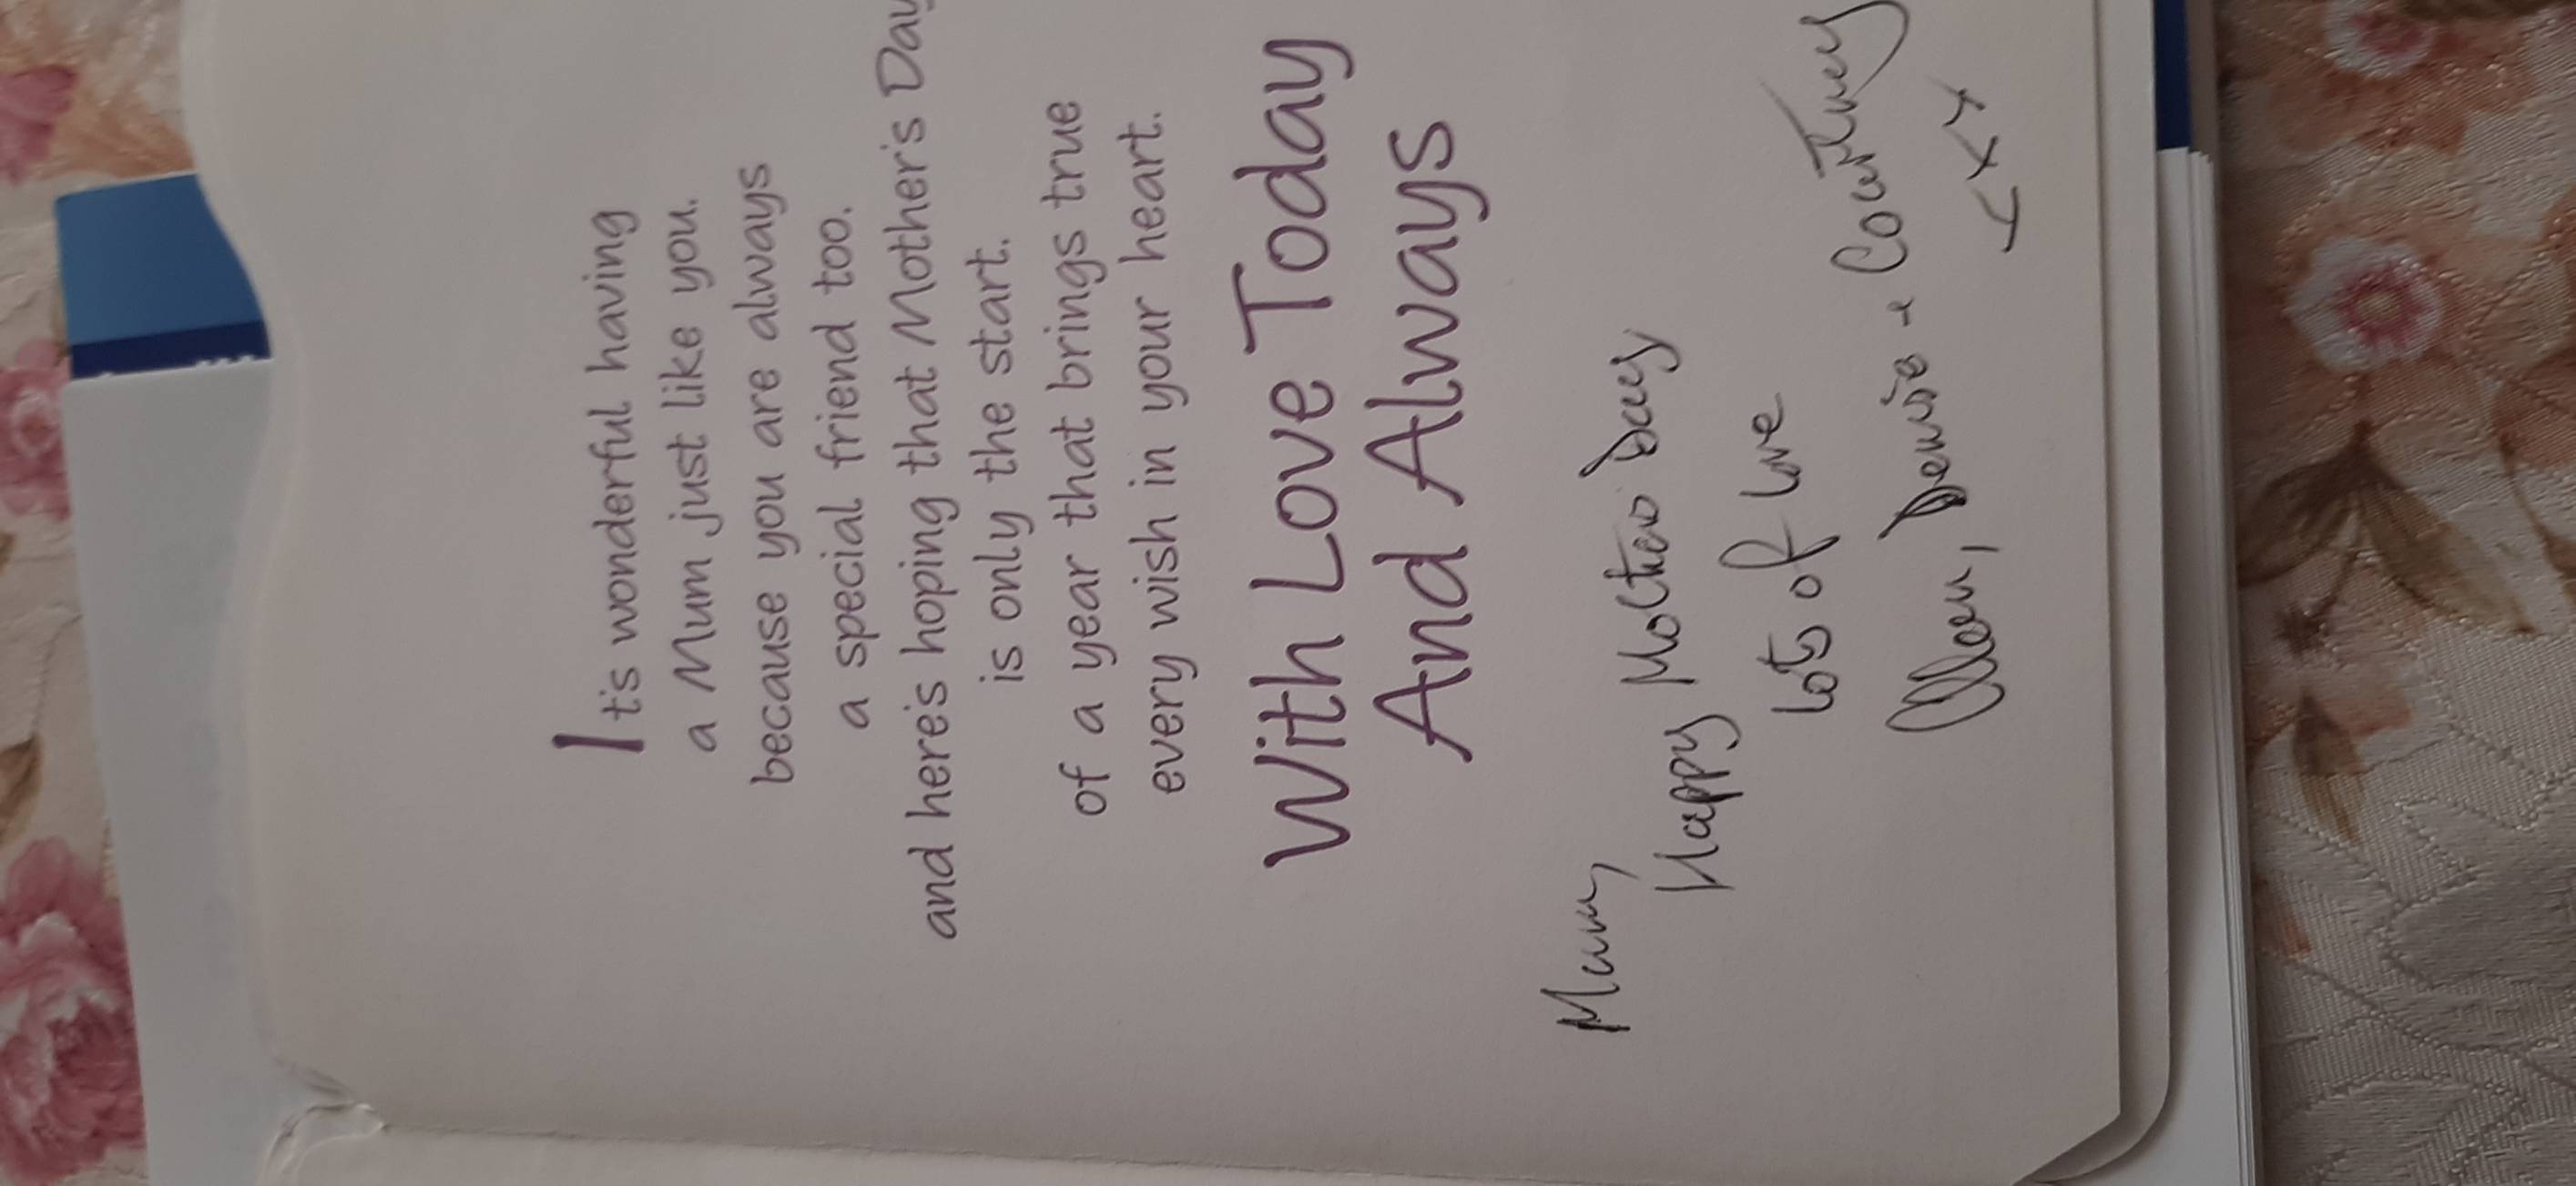 It's wonderful having
a Mum just like you.
because you are always
a special friend too.
and here's hoping that Mother's Day
is only the start.
of a year that brings true
every wish in your heart.
With Love Today
And Always
Mum,
Happy Mothers Day
lots of love
Denise + Courtney
xxx